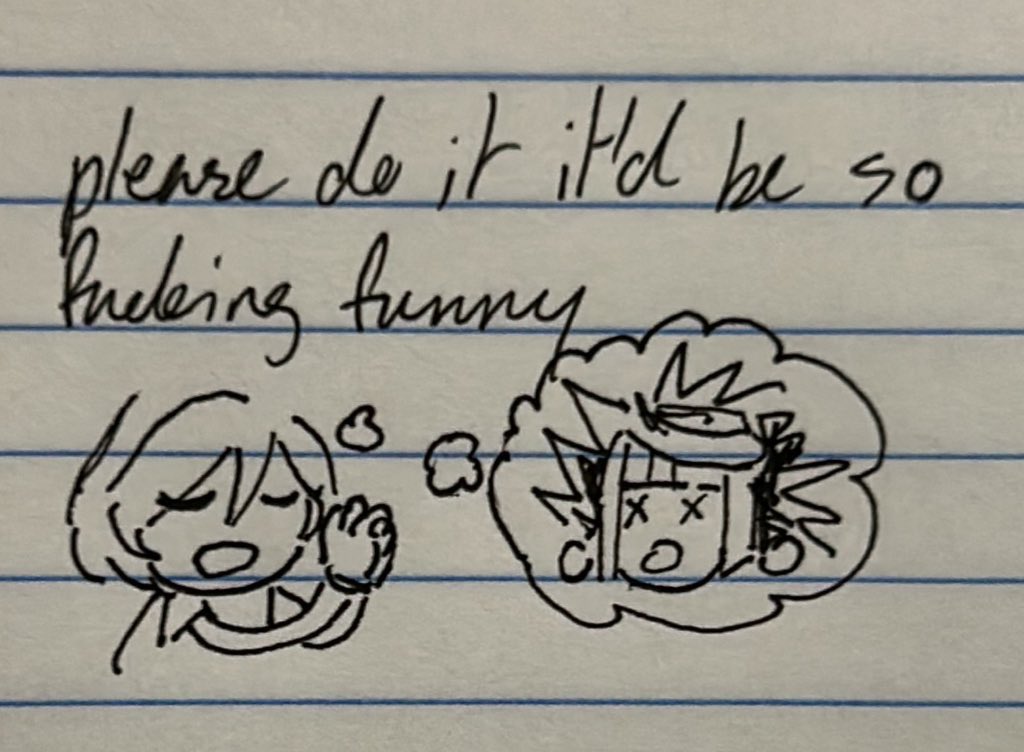 please do it it'd be so
fucking funny